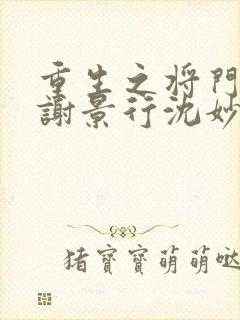 重生之将門
謝景行沈妙
猪寶寶萌萌哒